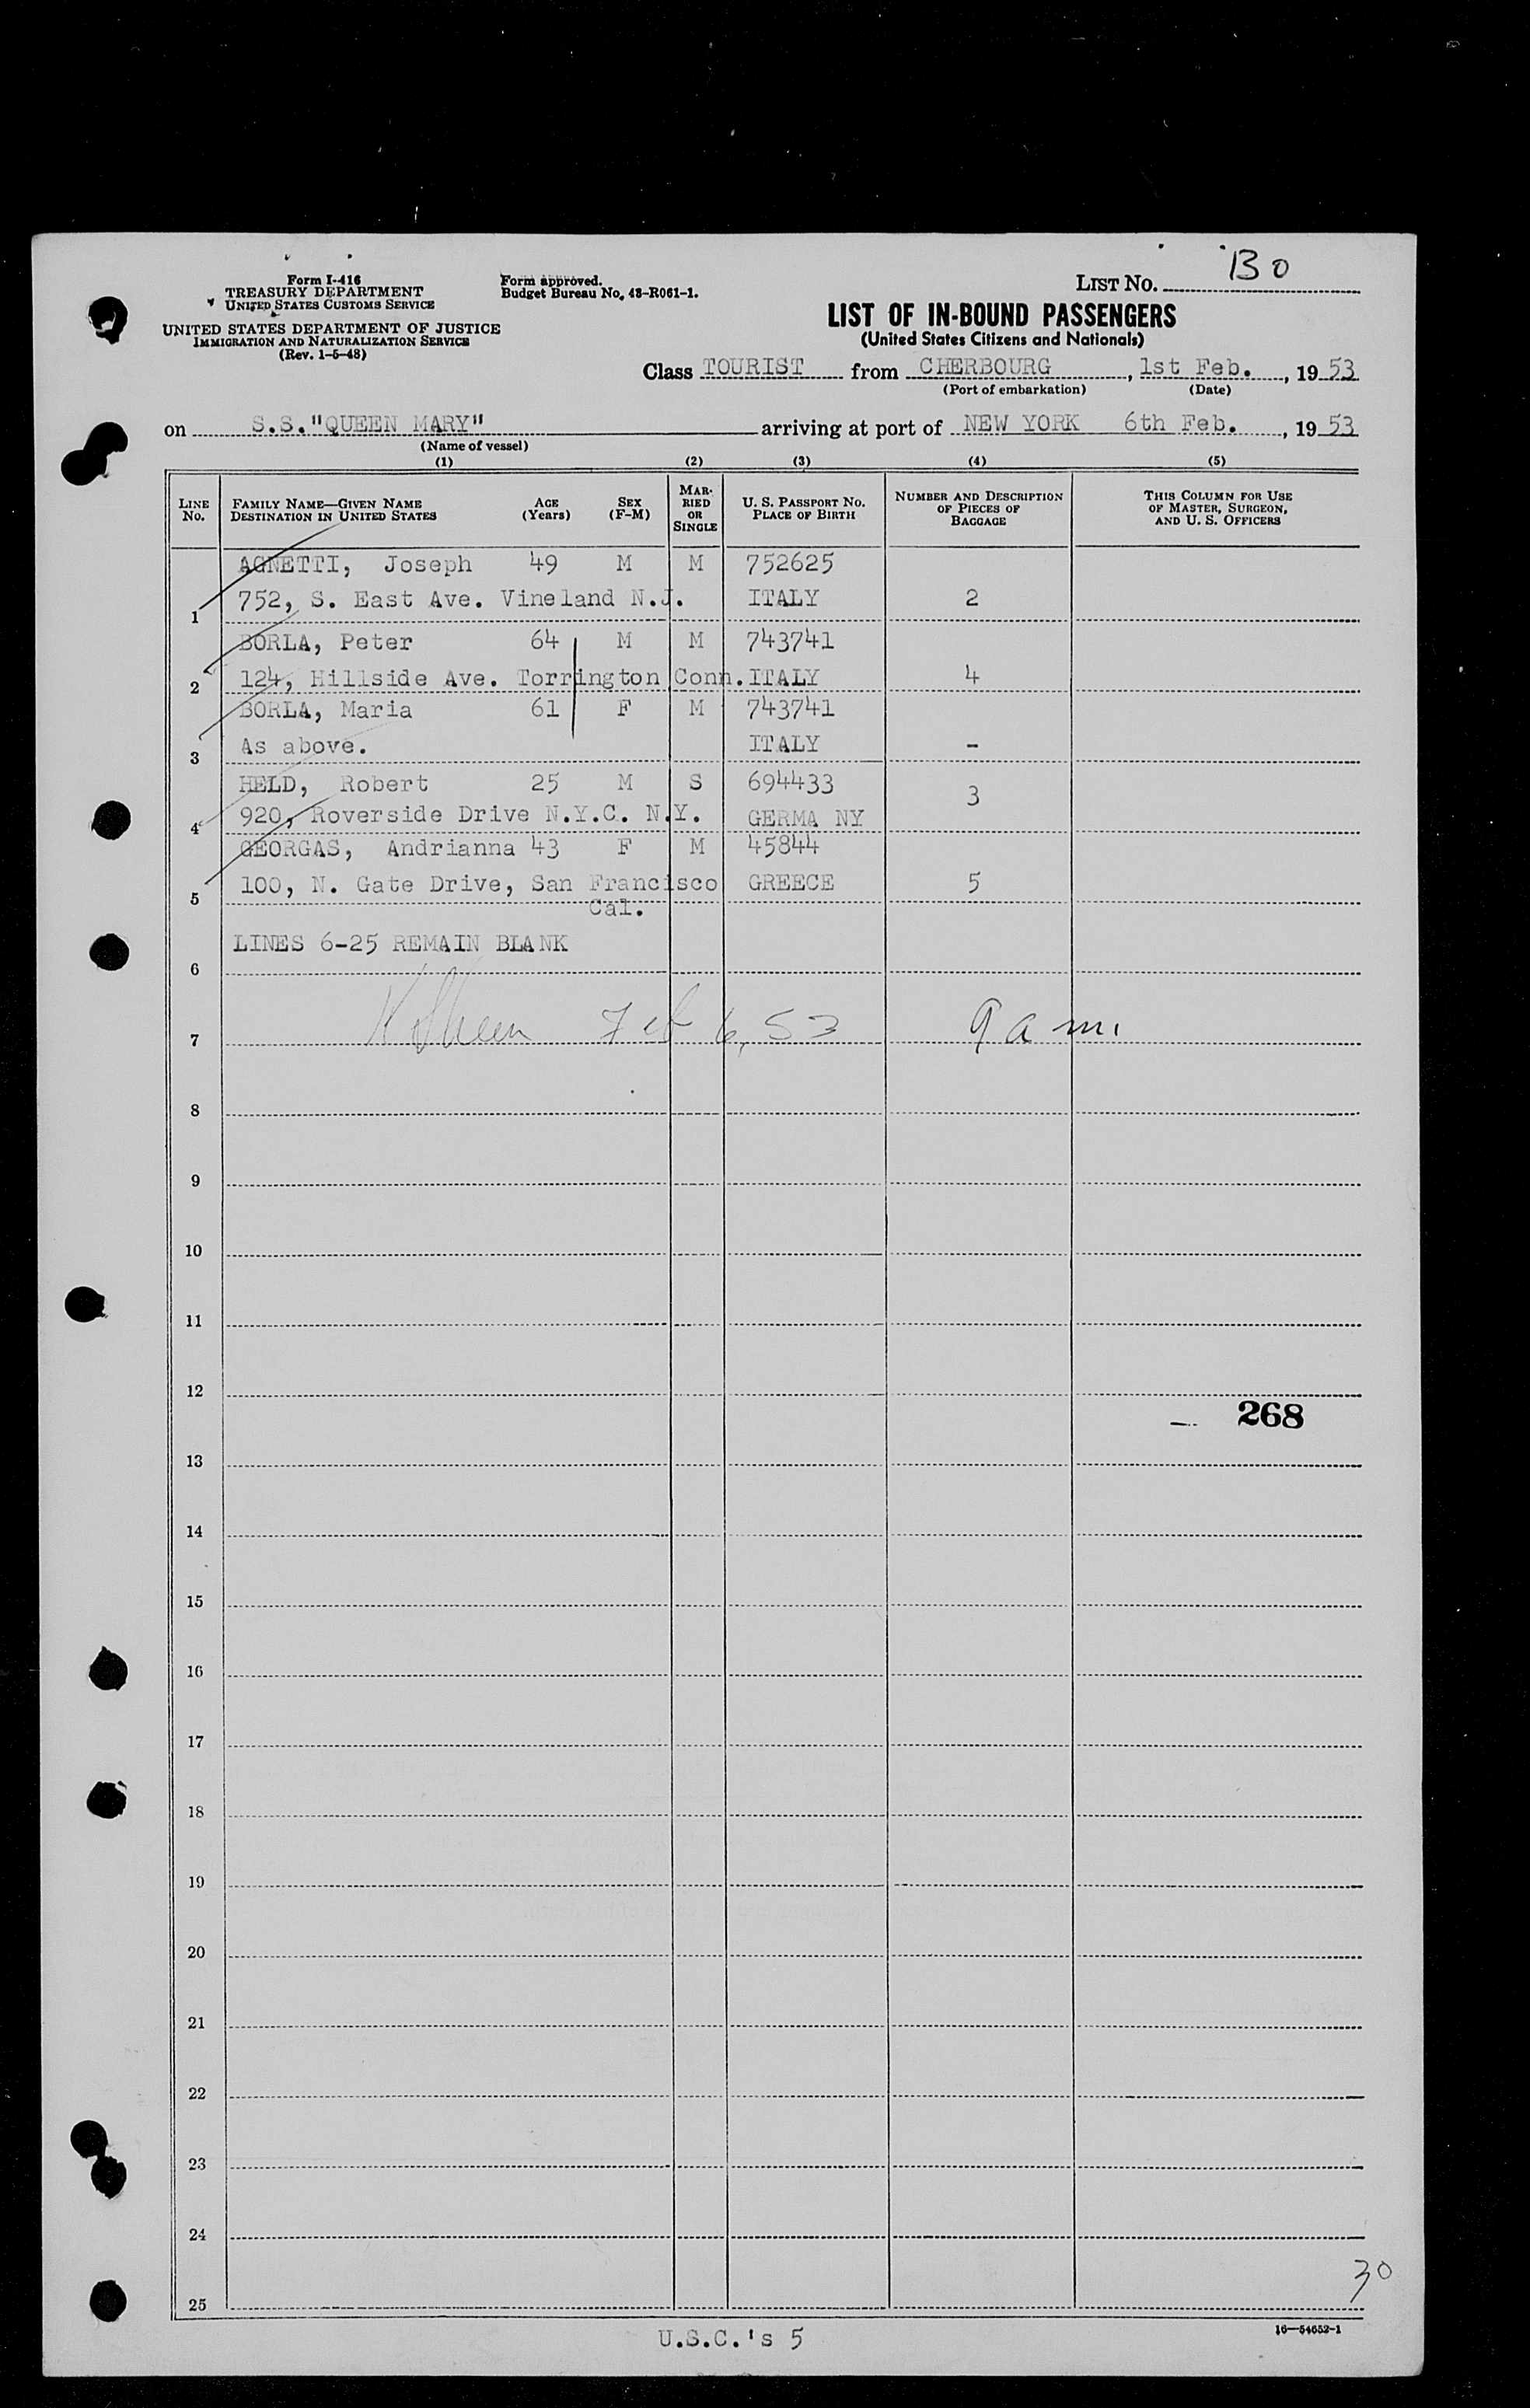 LIST No. 130
Form I-416
TREASURY DEPARTMENT
UNITED STATES CUSTOMS SERVICE
UNITED STATES DEPARTMENT OF JUSTICE
IMMIGRATION AND NATURALIZATION SERVICE
(Rev. 1-5-48)
Form approved.
Budget Bureau No. 43-R061-1.
LIST OF IN-BOUND PASSENGERS
(United States Citizens and Nationals)
Class TOURIST from CHERBOURG, 1st Feb., 1953
(Port of embarkation) (Date)
on S.S."QUEEN MARY" arriving at port of NEW YORK 6th Feb., 1953
(Name of vessel)
(1) (2) (3) (4) (5)
LINE No. FAMILY NAME—GIVEN NAME DESTINATION IN UNITED STATES AGE (Years) SEX (F-M) MARRIED OR SINGLE U. S. PASSPORT No. PLACE OF BIRTH NUMBER AND DESCRIPTION OF PIECES OF BAGGAGE THIS COLUMN FOR USE OF MASTER, SURGEON, AND U. S. OFFICERS
AGNETTI, Joseph 49 M M 752625
1 752, S. East Ave. Vineland N.J. ITALY 2
BORLA, Peter 64 M M 743741
2 124, Hillside Ave. Torrington Conn. ITALY 4
BORLA, Maria 61 F M 743741
3 As above. ITALY -
HELD, Robert 25 M S 694433
4 920, Roverside Drive N.Y.C. N.Y. GERMA NY 3
GEORGAS, Andrianna 43 F M 45844
5 100, N. Gate Drive, San Francisco GREECE 5
Cal.
LINES 6-25 REMAIN BLANK
6
7 Feb 6, 53 9 a m.
8
9
10
11
12
268
13
14
15
16
17
18
19
20
21
22
23
24
30
25
U.S.C.'s 5
16—54652-1